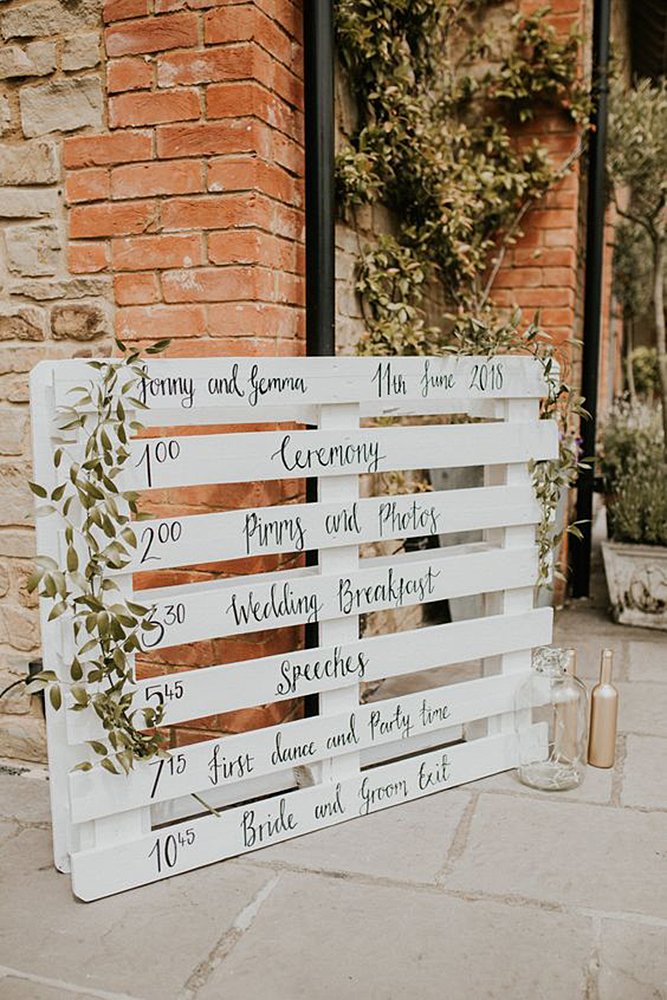 Jonny and Gemma 11th June 2018
1.00 Ceremony
2.00 Pimms and Photos
3.30 Wedding Breakfast
5.45 Speeches
7.15 First dance and Party time
10.45 Bride and Groom Exit